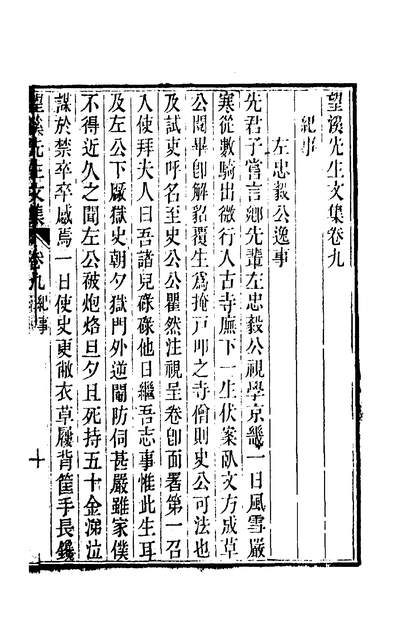 望溪先生文集卷九
紀事
左忠毅公逸事
先君子嘗言鄉先輩左忠毅公視學京畿一日風雪嚴
寒從數騎出微行入古寺廡下一生伏案臥文方成草
公閱畢卽解貂覆生爲掩戸叩之寺僧則史公可法也
及試吏呼名至史公公瞿然注視呈卷卽面署第一召
入使拜夫人曰吾諸兒碌碌他日繼吾志事惟此生耳
及左公下厰獄史朝夕獄門外逆閹防伺甚嚴雖家僕
不得近久之聞左公被炮烙旦夕且死持五十金涕泣
謀於禁卒卒感焉一日使史更敝衣草屨背筐手長鑱
望溪先生文集
卷九紀事
十